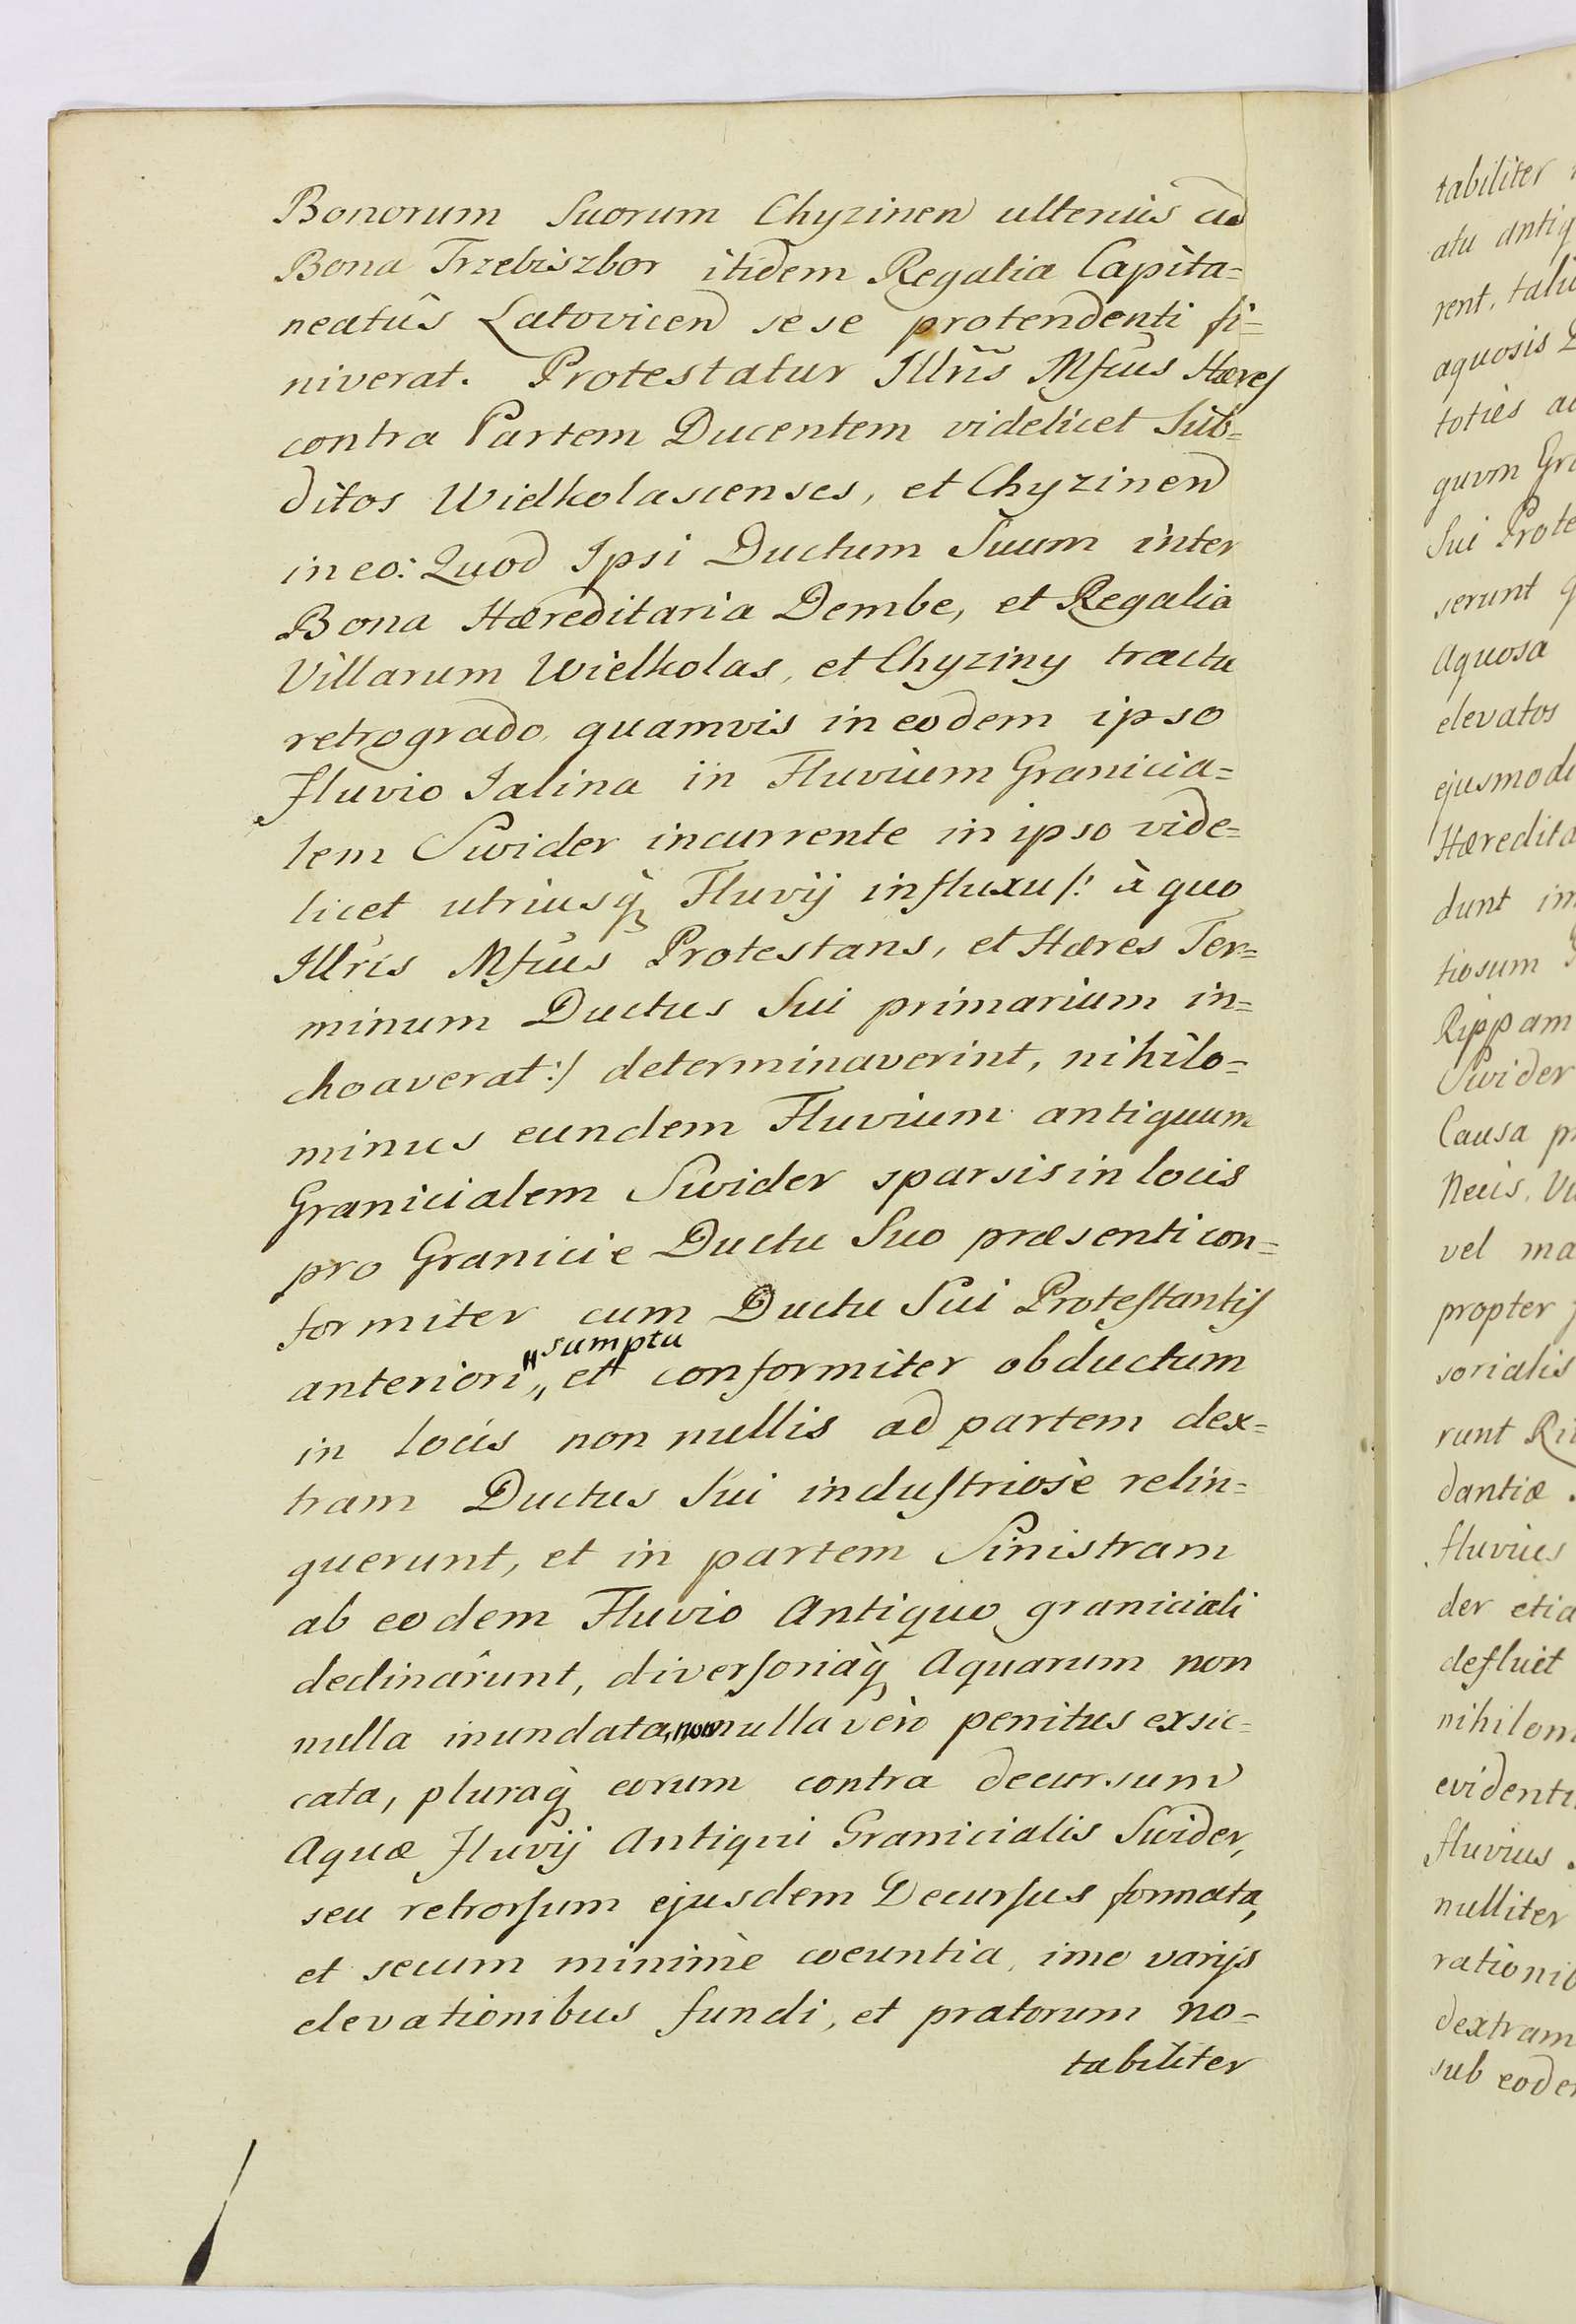 Bonorum Suorum Chyzinen ulteriùs ad
Bona Trzebiszbor itidem Regalia Capita=
neatûs Latovicen sese protendenti fi=
niverat. Protestatur Illris Mfcus Hæres
contra Partem Ducentem videlicet Sub=
ditos Wielkolascenses, et Chyzinen
in eo: Quod Ipsi Ductum Suum inter
Bona Hæreditaria Dembe, et Regalia
Villarum Wielkolas, et Chyziny tractu
retrogrado, quamvis in eodem ipso
Fluvio Jalina in Fluvium Granicia=
lem Swider incurrente in ipso vide=
licet utriusq̀ Fluvij influxu /: à quo
Illris Mfcus Protestans, et Hæres Ter=
minum Ductus Sui primarium in=
choaverat :/ determinaverint, nihilo=
minus eundem Fluvium antiquum
Granicialem Swider sparsis in locis
pro Granicie Ductu Suo præsenti con=
formiter cum Ductu Sui Protestantis
anteriori „ sumptu „ et conformiter obductum
in locis non nullis ad partem dex=
tram Ductus Sui industriosè relin=
querunt, et in partem Sinistram
ab eodem Fluvio Antiquo graniciali
declinârunt, diversoriaq̀ Aquarum non
nulla inundata, non nulla verò penitus exsic=
cata, pluraq̀ eorum contra decursum
Aquæ Fluvij Antiqui Granicialis Swider,
seu retrorsum ejusdem Decursus formata,
et secum minimè coeuntia, imo varijs
elevationibus fundi, et pratorum no=
tabiliter
tabiliter
atu antiq
rent, tali
aquosis
toties
quvm Gra
Sui Prote
serunt
Aquosa
elevatos
ejusmodi
Hæredita
dunt im
tiosum
Rippam
Swider
Causa
Necis,
vel ma
propter
sorialis
runt
dantiæ
fluvius
der etia
defluit
nihilom
evidenti
fluvius
nulliter
rationib
dextram
sub eode